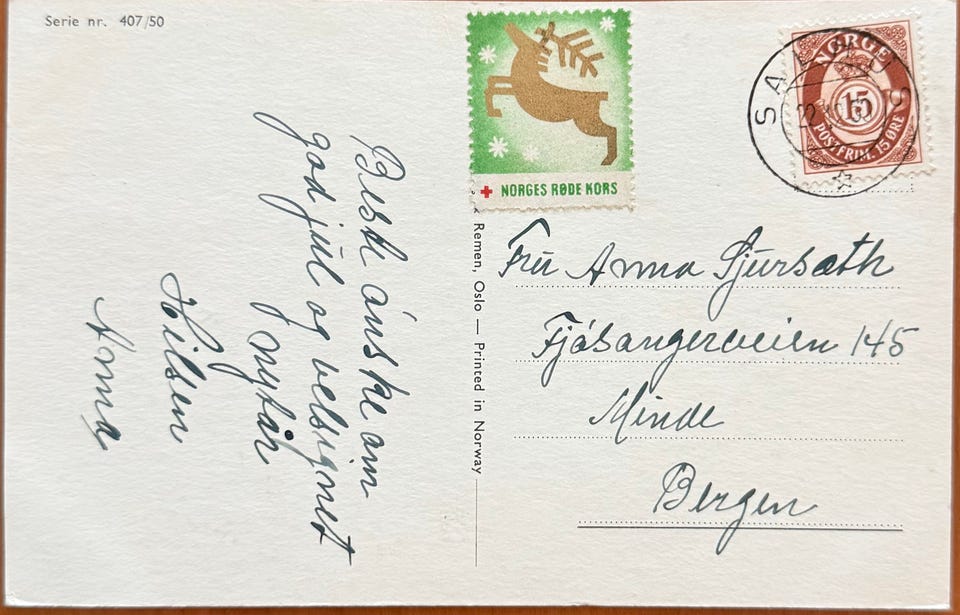 Serie nr. 407/50
Beste ónske om
god jul og velsignet
nytår
Hilsen
Anna
Remen, Oslo — Printed in Norway
NORGES RØDE KORS
NORGE
15
POSTFRIM. 15 ØRE
Fru Anna Sjursæth
Fjósangerveien 145
Minde
Bergen